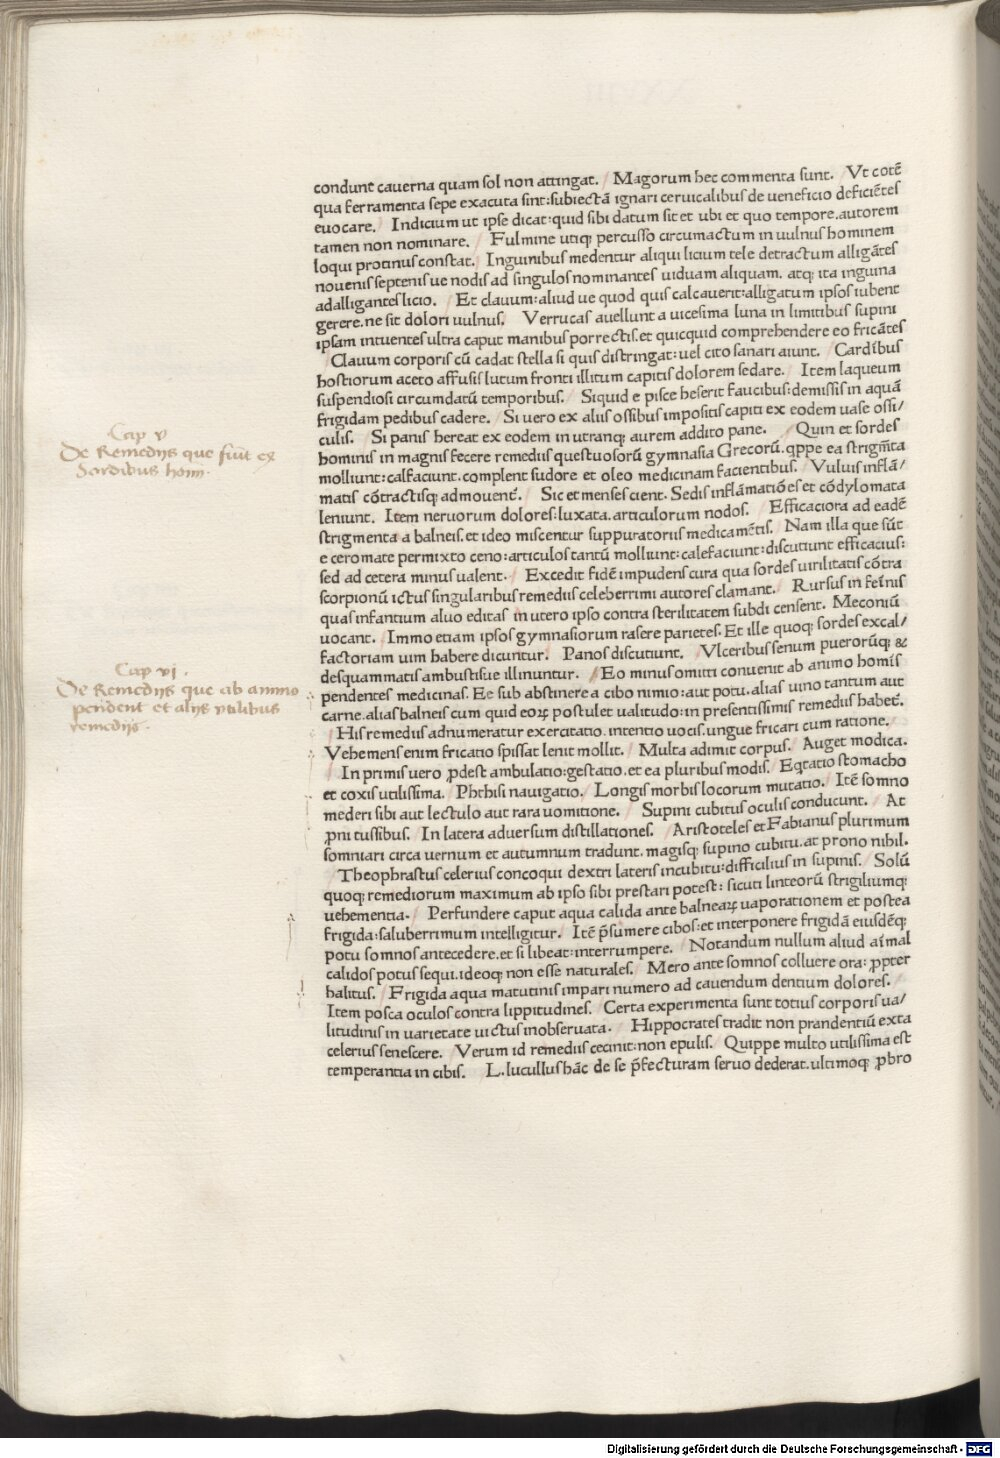 condunt cauerna quam sol non attingat. / Magorum hec commenta sunt. / Vt cotē
qua ferramenta sepe exacuta sint: subiectā ignari ceruicalibus de ueneficio deficiētes
euocare. / Indicium ut ipse dicat: quid sibi datum sit et ubi et quo tempore. autorem
tamen non nominare. / Fulmine utiq; percusso circumactum in uulnus hominem
loqui protinus constat. / Inguinibus medentur aliqui licium tele detractum alligātes
nouenis septenisue nodis ad singulos nominantes uiduam aliquam. atq; ita inguina
adalligantes licio. / Et clauum: aliud ue quod quis calcauerit: alligatum ipsos iubent
gerere. ne sit dolori uulnus. / Verrucas auellunt a uicesima luna in limitibus supini
ipsam intuentes ultra caput manibus porrectis. et quicquid comprehendere eo fricātes
/ Clauum corporis cū cadat stella si quis distringat: uel cito sanari aiunt. / Cardībus
hostiorum aceto affusis lutum fronti illitum capitis dolorem sedare. / Item laqueum
suspendiosi circumdatū temporibus. / Siquid e pisce heserit faucibus: demissis in aquā
frigidam pedibus cadere. / Si uero ex aliis ossibus impositis capiti ex eodem uase ossi/
culis. / Si panis hereat ex eodem in utranq; aurem addito pane. / Quin et sordes
hominis in magnis fecere remediis questuosorū gymnasia Grecorū. qppe ea strigmīta
molliunt: calfaciunt. complent sudore et oleo medicinam facientibus. / Vuluis inflā/
matis cōtractisq; admouent́. / Sic et menses cient. Sedis inflāmatiōes et cōdylomata
leniunt. Item neruorum dolores: luxata. articulorum nodos. / Efficaciora ad eadē
strigmenta a balneis. et ideo miscentur suppuratoriis medicamētis. / Nam illa que sūt
e ceromate permixto ceno: articulos tantū molliunt: calefaciunt: discutiunt efficacius:
sed ad cetera minus ualent. / Excedit fidē impudens cura qua sordes uirilitatis cōtra
scorpionū ictus singularibus remediis celeberrimi autores clamant. / Rursus in feīnis
quas infantium aluo editas in utero ipso contra sterilitatem subdi censent. Meconiū
uocant. / Immo etiam ipsos gymnasiorum rasere parietes. Et ille quoq; sordes excal/
factoriam uim habere dicuntur. / Panos discutiunt. / Vlceribus senum puerorūq; &
desquammatis ambustisue illinuntur. / Eo minus omitti conuenit ab animo homīs
pendentes medicinas. Ee sub abstinere a cibo nimio: aut potu. alias uino tantum aut
carne. alias balneis cum quid eoꝝ postulet ualitudo: in presentissimis remediis habet́.
/ His remediis adnumeratur exercitatio. intentio uocis. ungue fricari cum ratione.
Vehemens enim fricatio spissat lenit mollit. / Multa adimit corpus. / Auget modica.
/ In primis uero ꝓdest ambulatio: gestatio. et ea pluribus modis. / Eqtatio stomacho
et coxis utilissima. / Phthisi nauigatio. / Longis morbis locorum mutatio. / Itē somno
mederi sibi aut lectulo aut rara uomitione. / Supini cubitus oculis conducunt. / At
ꝓni tussibus. / In latera aduersum distillationes. / Aristoteles et Fabianus plurimum
somniari circa uernum et autumnum tradunt. magisq; supino cubitu. at prono nihil.
/ Theophrastus celerius concoqui dextri lateris incubitu: difficilius in supinis. / Solū
quoq; remediorum maximum ab ipso sibi prestari potest: sicuti linteorū strigiliumq;
uehementia. / Perfundere caput aqua calida ante balneaꝝ uaporationem et postea
frigida: saluberrimum intelligitur. / Itē p̄sumere cibos: et interponere frigidā eiusdēq;
potu somnos antecedere. et si libeat: interrumpere. / Notandum nullum aliud aīmal
calidos potus sequi. ideoq; non esse naturales. / Mero ante somnos colluere ora: ꝓpter
halitus. / Frigida aqua matutinis impari numero ad cauendum dentium dolores. /
Item posca oculos contra lippitudines. / Certa experimenta sunt totius corporis ua/
litudinis in uarietate uictus inobseruata. / Hippocrates tradit non prandentiū exta
celerius senescere. / Verum id remediis cecinit: non epulis. / Quippe multo utilissima est
temperantia in cibis. / L. lucullus hāc de se p̄fecturam seruo dederat. ultimoq; ꝓbro
Cap v
De Remedijs que fiūt ex
Sordibus homī.
Cap vj.
De Remedijs que ab animo
pendent et alijs vtilibus
remedijs.
Digitalisierung gefördert durch die Deutsche Forschungsgemeinschaft - DFG